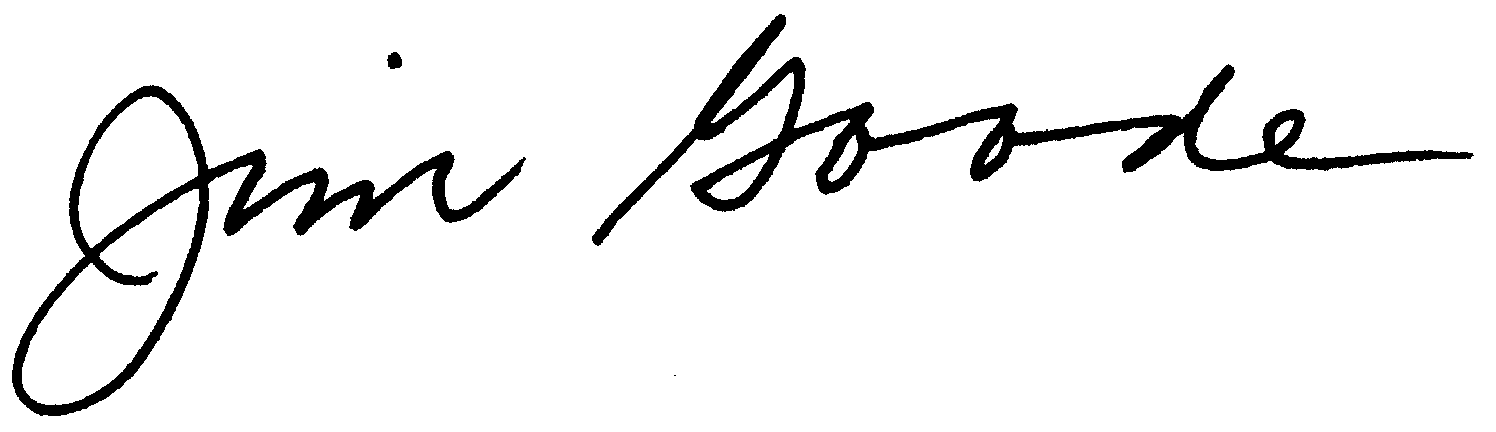 Jim Goode